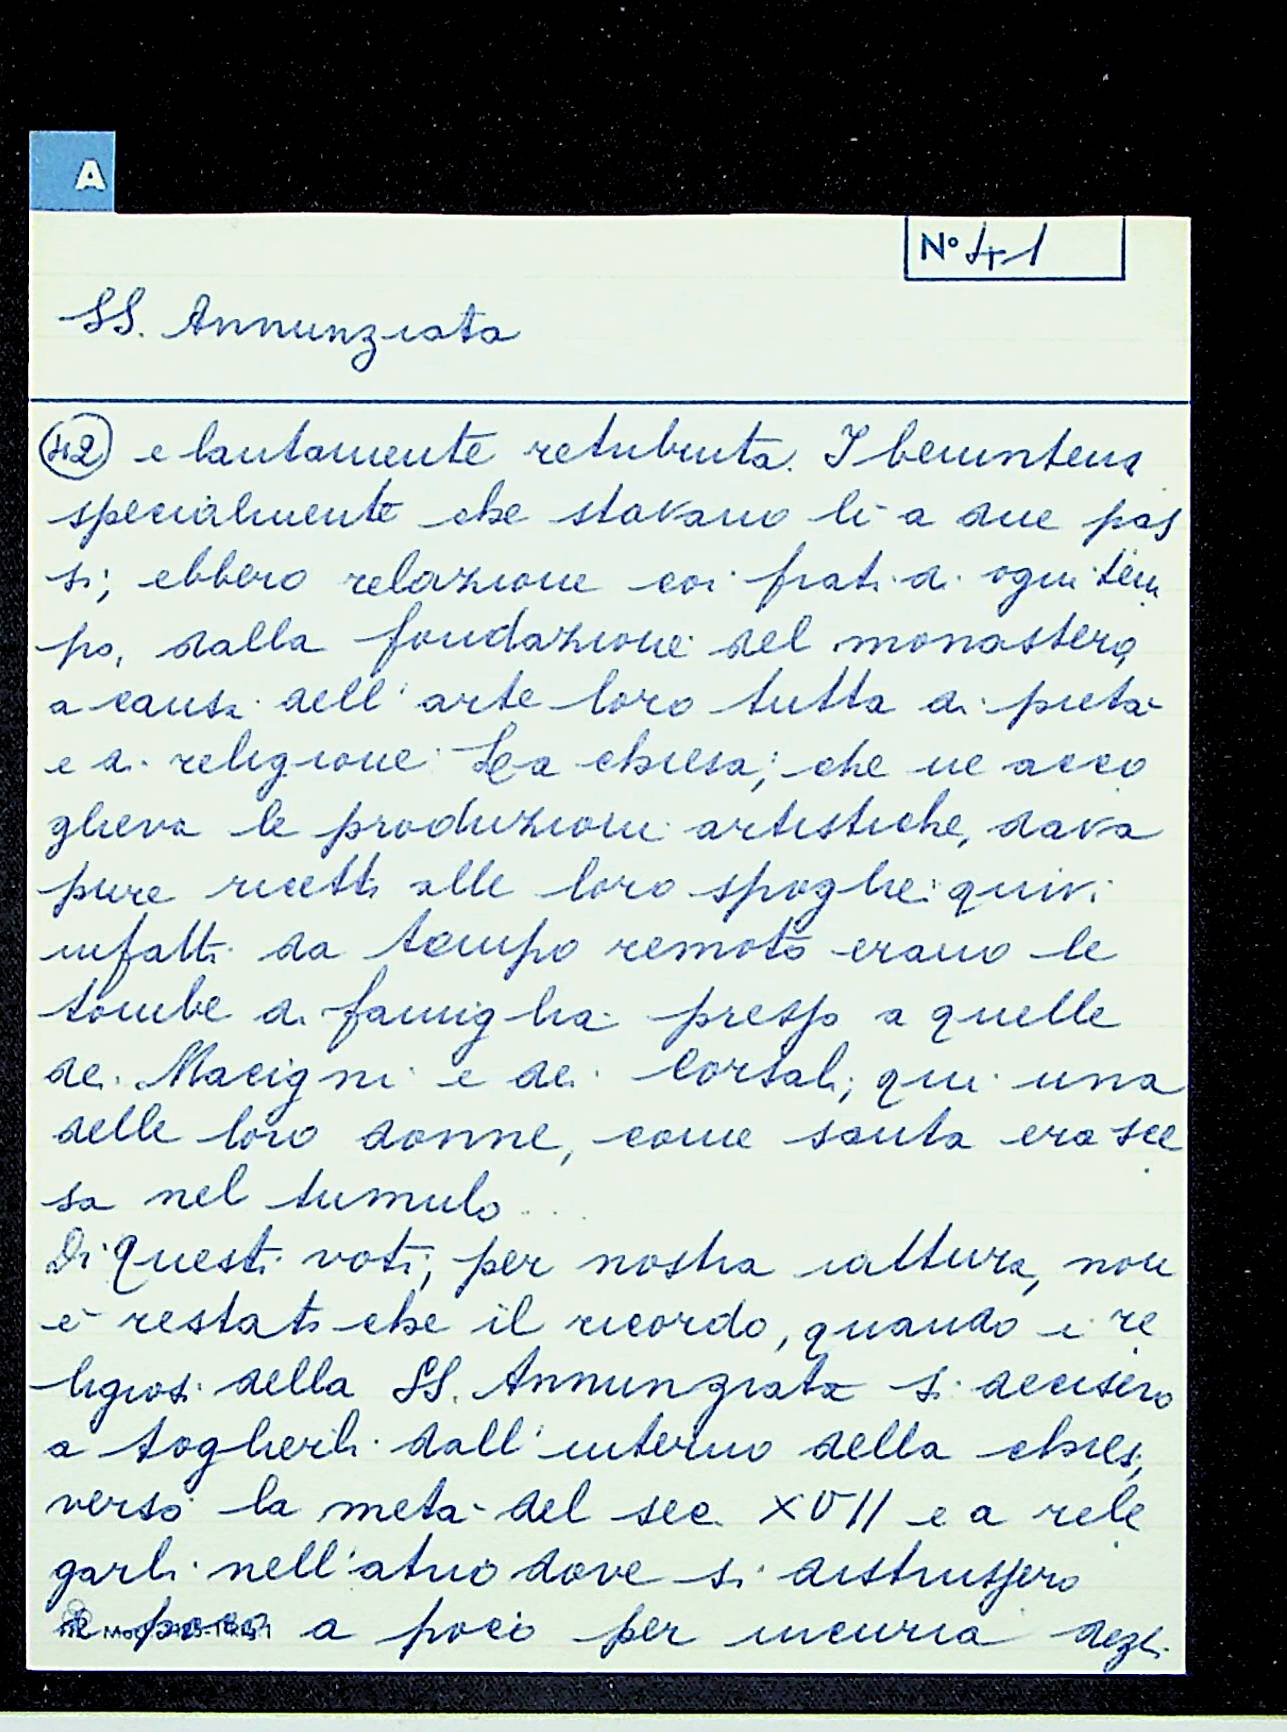 A
N° 41
SS. Annunziata
42 e lautamente retribuita. I benintend
specialmente che stavano lì a due pas
si, ebbero relazione coi frati di ogni tem
po, dalla fondazione del monastero,
a causa dell'arte loro tutta di pietà
e di religione. La chiesa, che ne acco
glieva le produzioni artistiche, dava
pure ricetto alle loro spoglie: quivi
infatti da tempo remoto erano le
tombe di famiglia presso a quelle
dei Macigni e dei Corsali; qui una
delle loro donne, come santa era sce
sa nel tumulo...
Di questi voti, per nostra iattura, non
è restato che il ricordo, quando i re
ligiosi della SS. Annunziata si decisero
a toglierli dall'interno della chiesa,
verso la metà del sec. XVII e a rele
garli nell'atrio dove si distrussero
a poco a poco per incuria degli